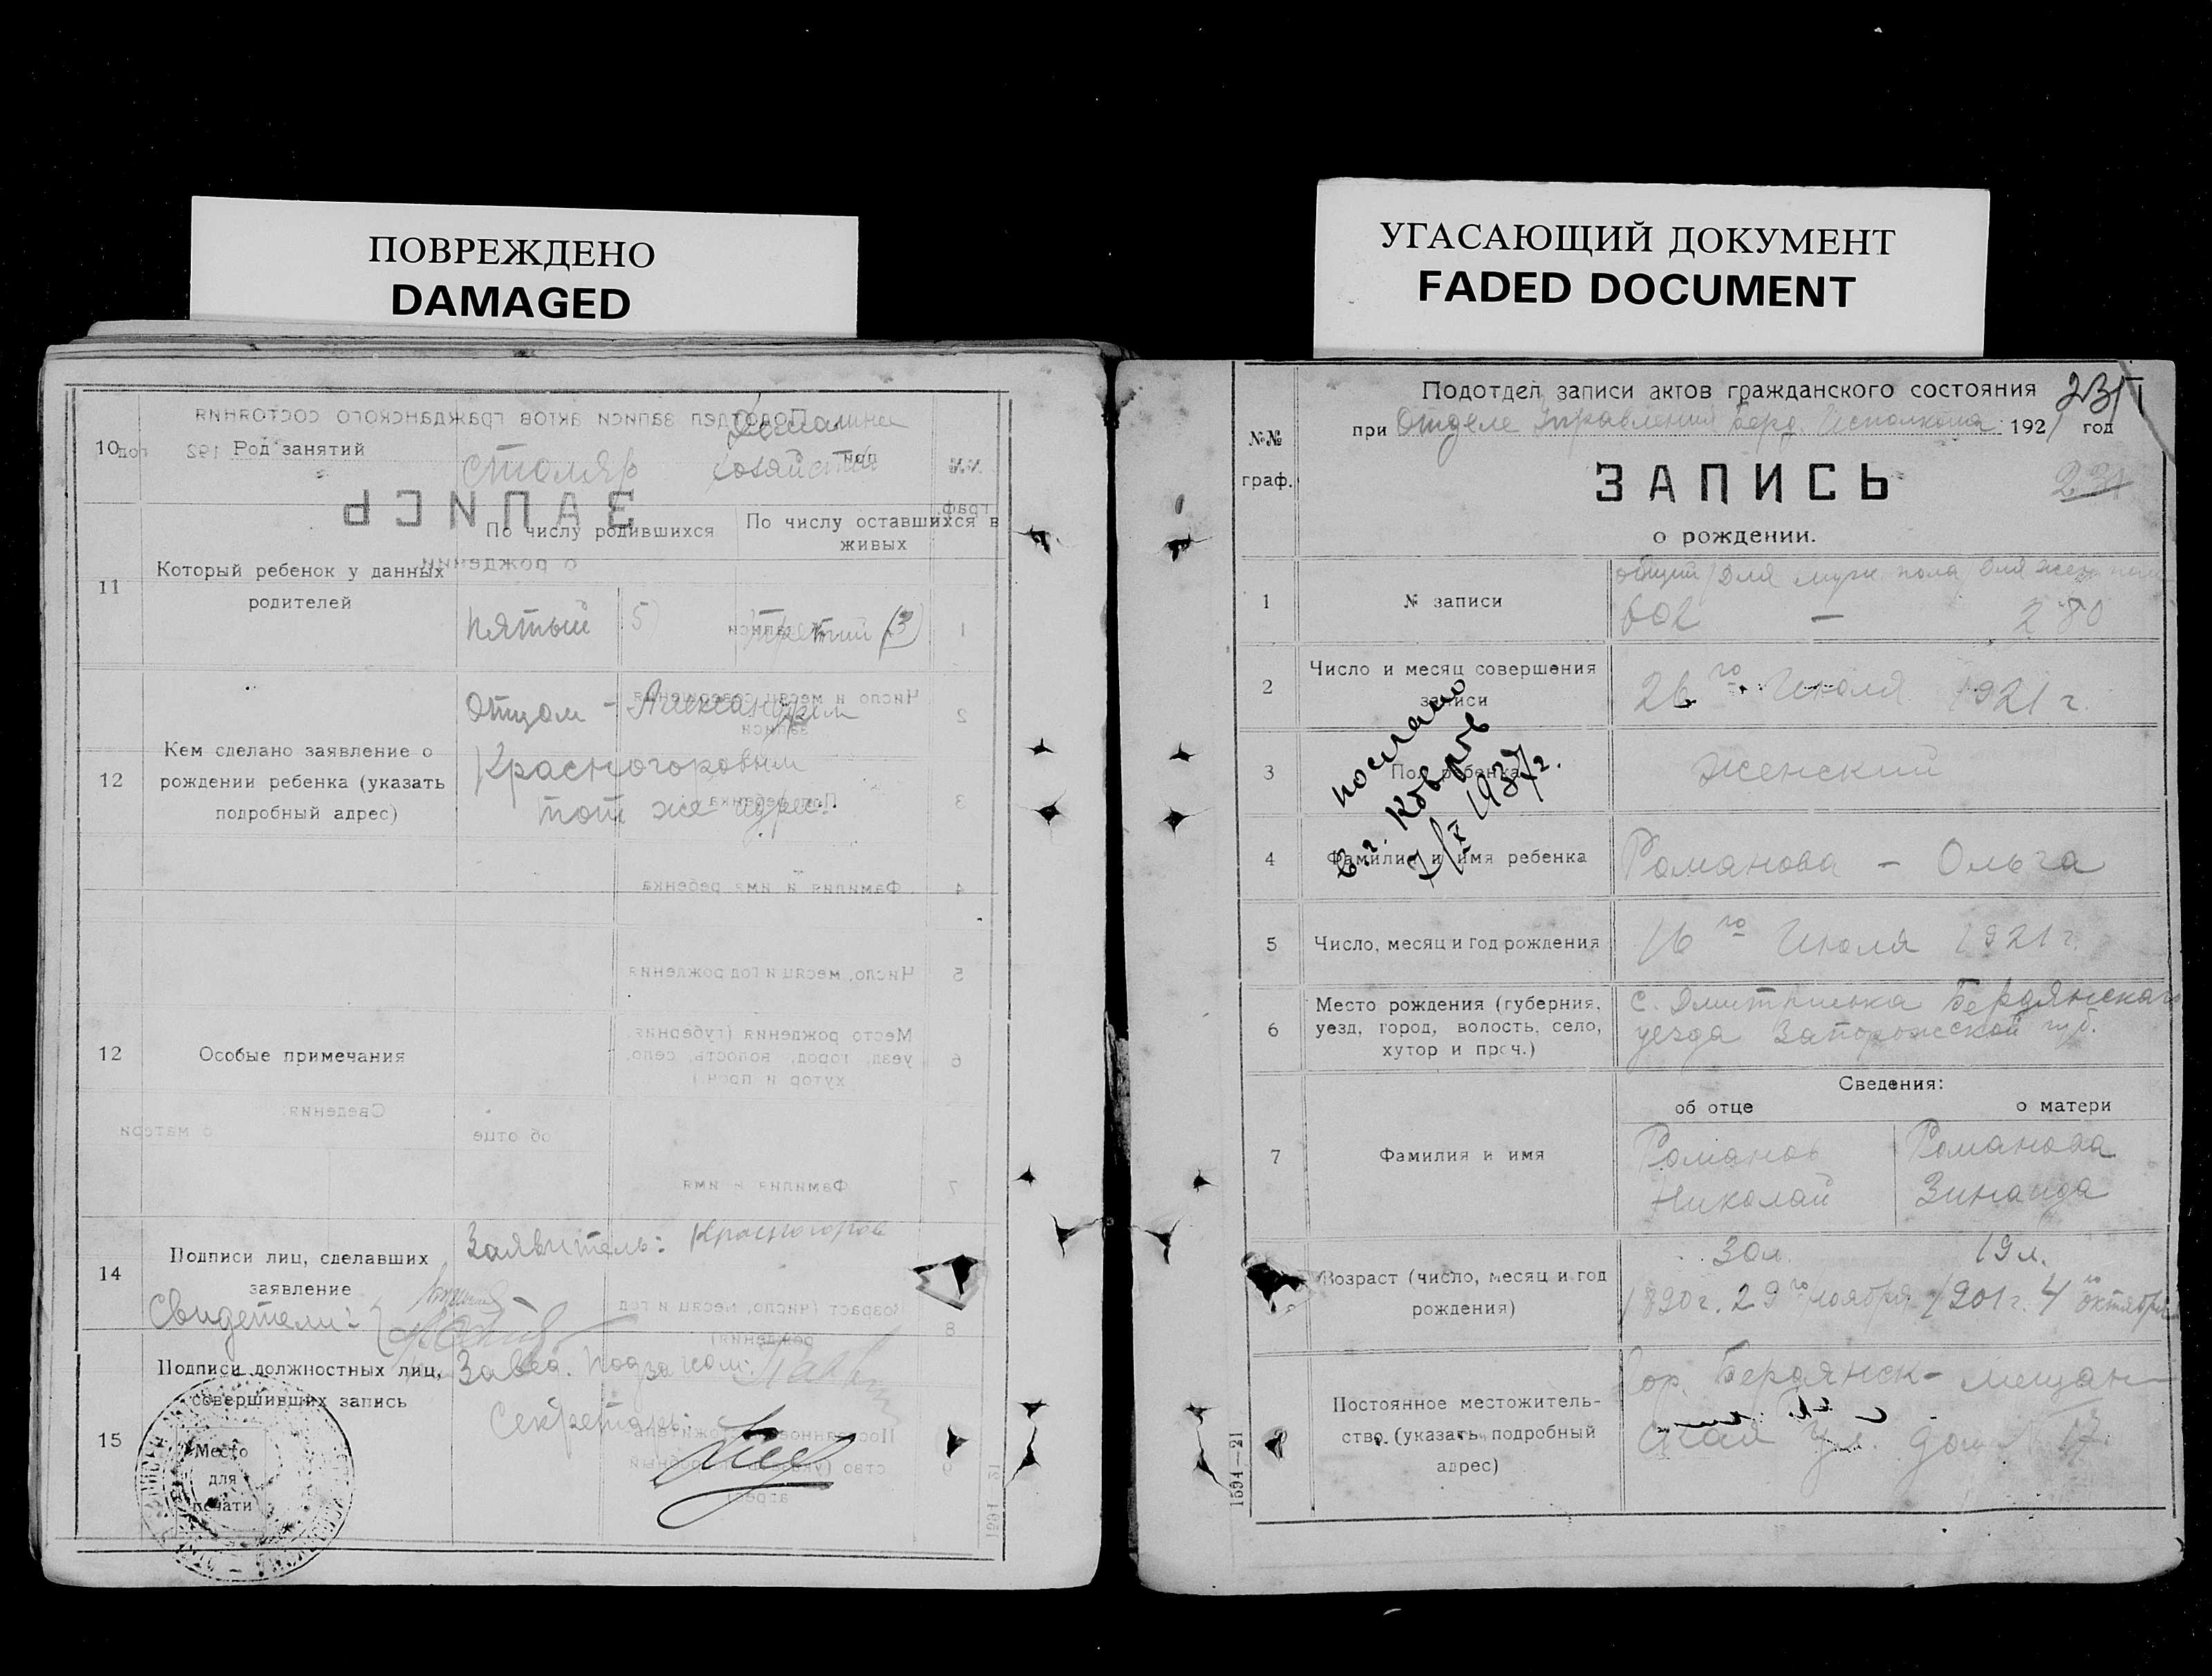 ПОВРЕЖДЕНО
DAMAGED
УГАСАЮЩИЙ ДОКУМЕНТ
FADED DOCUMENT
10
Род занятий
столяр
Домашнее хозяйство
11
Который ребенок у данных родителей
По числу родившихся
По числу оставшихся в живых
пятый 5)
третий (3)
12
Кем сделано заявление о
рождении ребенка (указать
подробный адрес)
Отцом - Александром
Красногоровым
тот же адрес.
12
Особые примечания
14
Подписи лиц, сделавших
заявление
Заявитель: Красногоров
Свидетели:
15
Подписи должностных лиц,
совершивших запись
Завед.
Секретарь:
Место
для
печати
Подотдел записи актов гражданского состояния
231
при Отделе Управления Берд. Исполкома 1921 год
№№
граф.
ЗАПИСЬ
231
о рождении.
1
№ записи
общий / Для муж. пола / Для жен. пола
602 — 280
2
Число и месяц совершения
записи
26го Июля 1921 г.
3
Пол ребенка
Женский
послано
в г. Ковров
7/X 1937 г.
4
Фамилия и имя ребенка
Романова - Ольга
5
Число, месяц и год рождения
16го Июля 1921 г.
6
Место рождения (губерния,
уезд, город, волость, село,
хутор и проч.)
с. Дмитриевка Бердянского
уезда Запорожской губ.
Сведения:
об отце
о матери
7
Фамилия и имя
Романов
Николай
Романова
Зинаида
Возраст (число, месяц и год
рождения)
30 л.
1890 г. 29го ноября
19 л.
1901 г. 4го октября
9
Постоянное местожитель-
ство. (указать подробный
адрес)
Гор. Бердянск - мещан-
ская ул. дом № 17.
1594—21